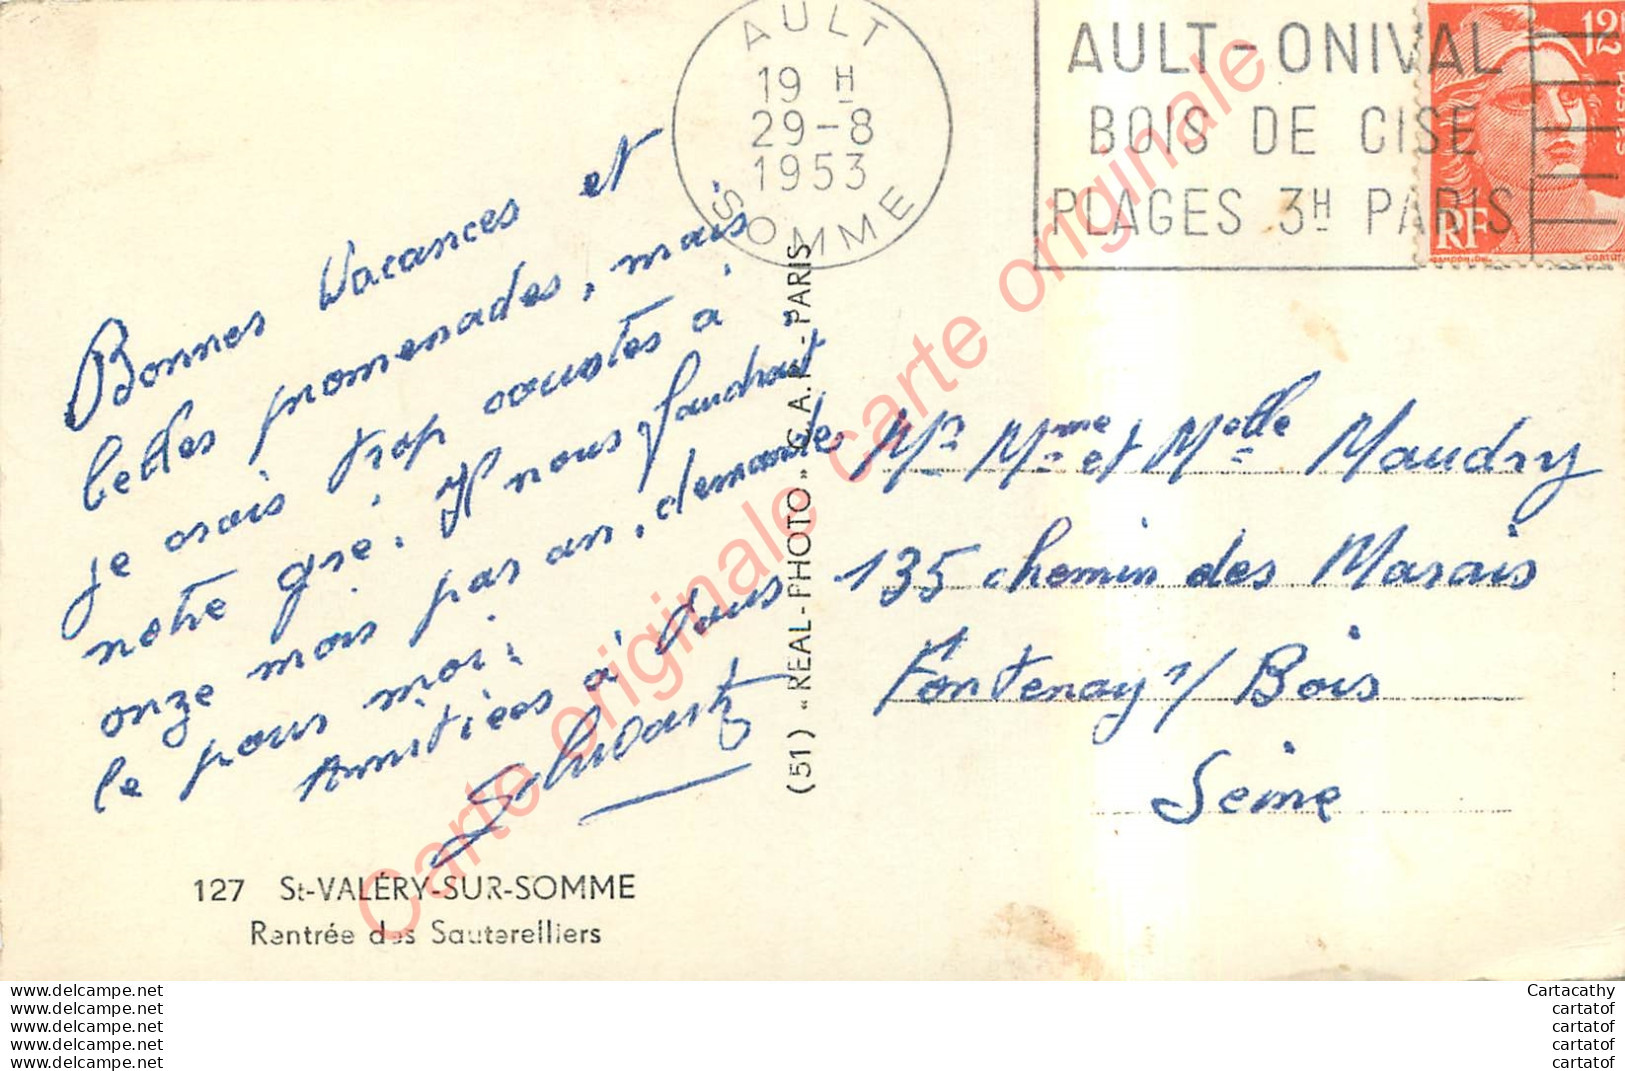 AULT
19 H
29-8
1953
SOMME
AULT - ONIVAL
BOIS DE CISE
PLAGES 3H PARIS
12F
POSTES
RF
GANDON DEL.
Bonnes Vacances et
belles promenades, mais
trop à
notre gré. Il nous faudrait
onze mois par an, demandez
le pour moi.
Amitiées à tous
(51) « REAL-PHOTO » C. A. P. - PARIS
Mr Mme et Melle Maudry
135 chemin des Marais
Fontenay s/ Bois
Seine
127 St-VALÉRY-SUR-SOMME
Rentrée des Sauterelliers
Carte originale Carte originale
www.delcampe.net
www.delcampe.net
www.delcampe.net
www.delcampe.net
www.delcampe.net
Cartacathy
cartatof
cartatof
cartatof
cartatof